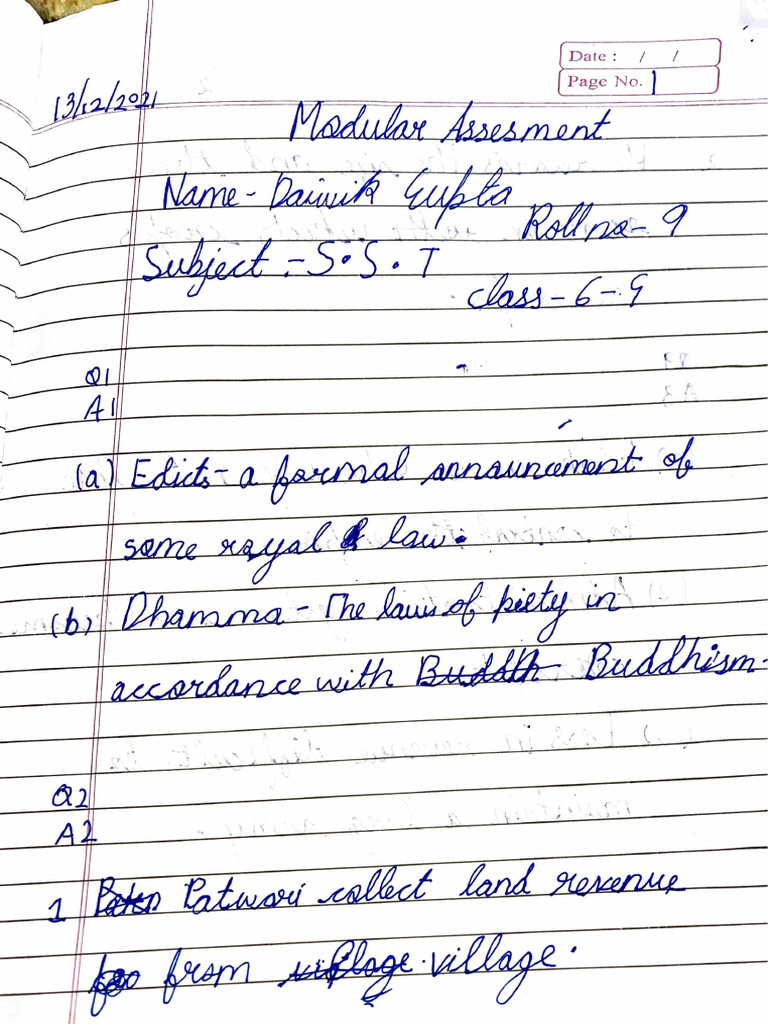 Date : / /
Page No. 1
13/12/2021
Modular Assesment
Name - Dainik Gupta
Roll no - 9
Subject :- S.S.T
class - 6 - G
Q1
A1
(a) Edicts - a formal announcement of
some royal law.
(b) Dhamma - The laws of piety in
accordance with Buddhism.
Q2
A2
1 Patwari collect land revenue
from village.